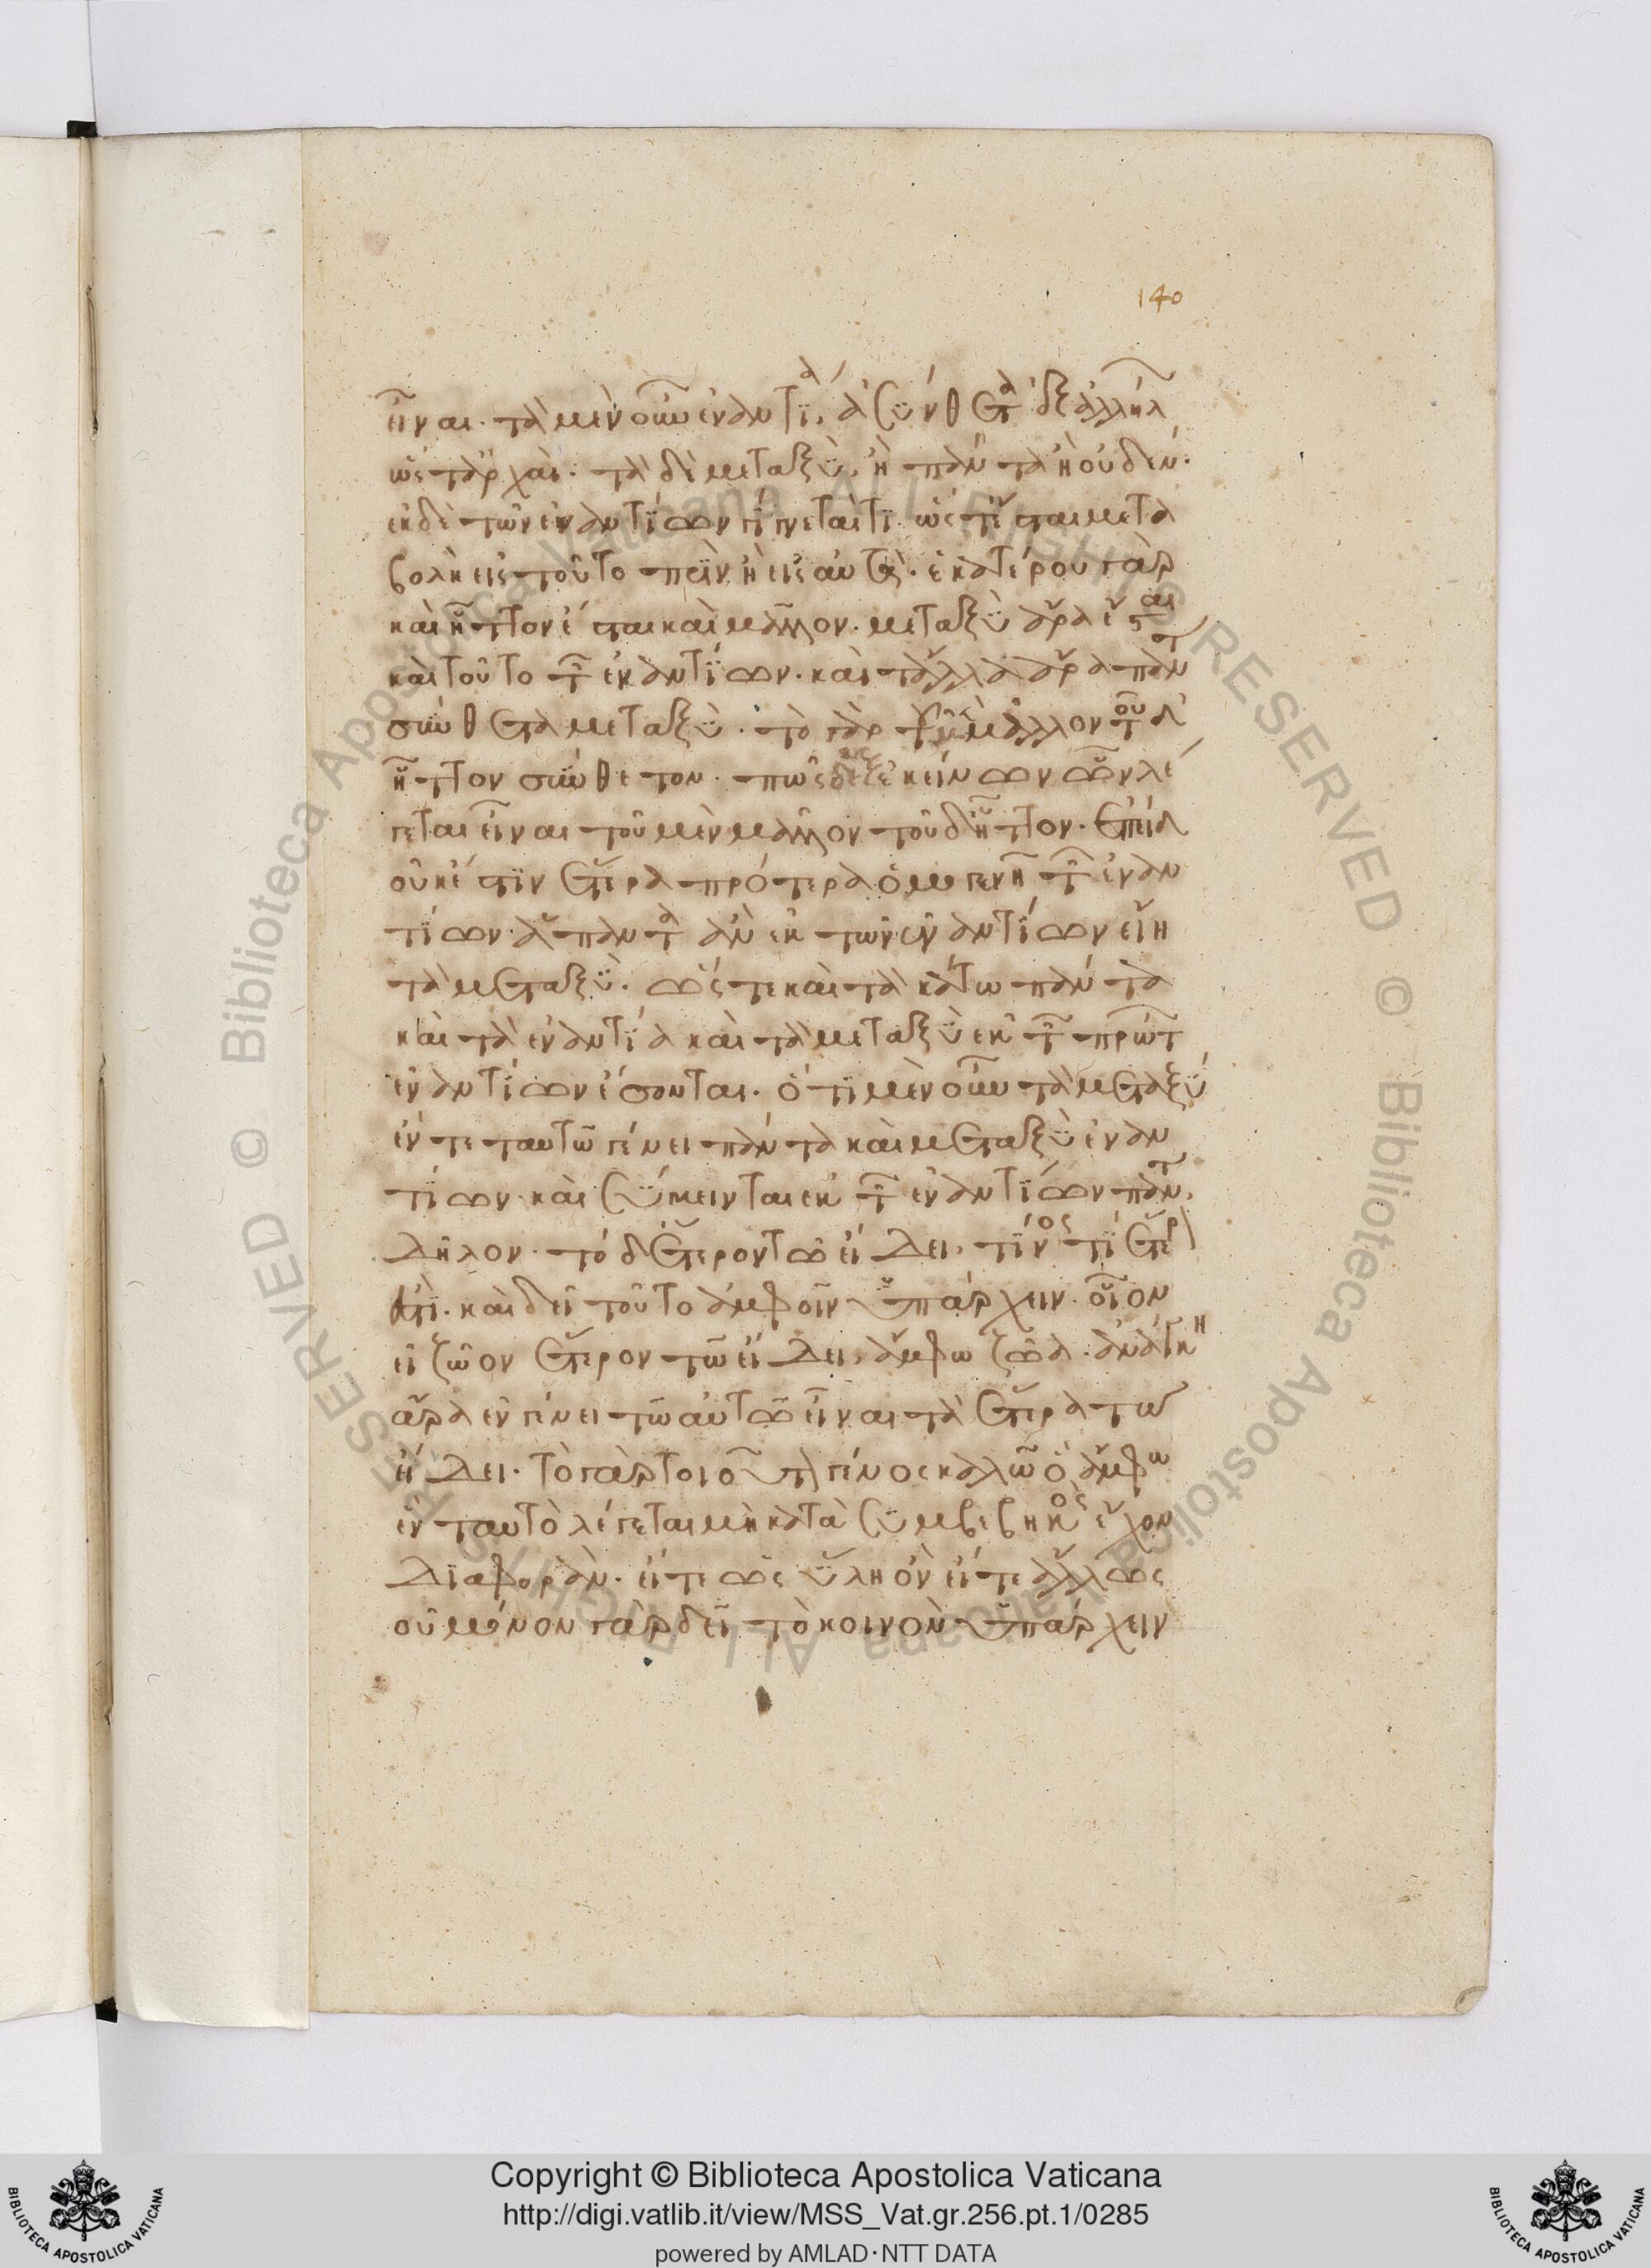 140
εἶναι· τὰ μὲν οὖν ἐναντία, ἀσύνθετα ἐξ ἀλλήλων
ὥστ' ἀρχαί· τὰ δὲ μεταξὺ, ἢ πάντα ἢ οὐδέν·
ἐκ δὲ τῶν ἐναντίων γίγνεταί τι· ὥστ' ἔσται μετα
βολὴ εἰς τοῦτο πρὶν ἢ εἰς αὐτά· ἑκατέρου γὰρ
καὶ ἧττον ἔσται καὶ μᾶλλον· μεταξὺ ἄρα ἔσται
καὶ τοῦτο τῶν ἐναντίων· καὶ τἄλλα ἄρα πάντα
σύνθετα μεταξύ· τὸ γὰρ τοῦ μὲν μᾶλλον τοῦ δ'
ἧττον σύνθετον· πως ἐξ ἐκείνων ὧν λέ
γεται εἶναι τοῦ μὲν μᾶλλον τοῦ δ' ἧττον· ἐπεὶ δ'
οὐκ ἔστιν ἕτερα πρότερα ὁμογενῆ τῶν ἐναν
τίων ἅπαντα ἂν ἐκ τῶν ἐναντίων εἴη
τὰ μεταξύ· ὥστε καὶ τὰ κάτω πάντα
καὶ τὰ ἐναντία καὶ τὰ μεταξὺ ἐκ τῶν πρώτων
ἐναντίων ἔσονται· ὅτι μὲν οὖν τὰ μεταξὺ
ἔν τε ταυτῶ γένει πάντα καὶ μεταξὺ ἐναν
τίων καὶ σύγκεινται ἐκ τῶν ἐναντίων πάντα,
δῆλον· τὸ δ' ἕτερον τῶ εἴδει, τινός τι ἕτερόν
ἐστι· καὶ δεῖ τοῦτο ἀμφοῖν ὑπάρχειν· οἷον
εἰ ζῶον ἕτερον τῶ εἴδει, ἄμφω ζῶα· ἀνάγκη
ἄρα ἐν γένει τῶ αὐτῶ εἶναι τὰ ἕτερα τῶ
εἴδει· τὸ γὰρ τοιοῦτον γένος καλῶ ὃ ἄμφω
ἓν ταυτὸ λέγεται μὴ κατὰ συμβεβηκὸς ἔχον
διαφοράν· εἴτε ὡς ὕλη ὂν εἴτε ἄλλως
οὐ μόνον γὰρ δεῖ τὸ κοινὸν ὑπάρχειν
Copyright © Biblioteca Apostolica Vaticana
http://digi.vatlib.it/view/MSS_Vat.gr.256.pt.1/0285
powered by AMLAD·NTT DATA